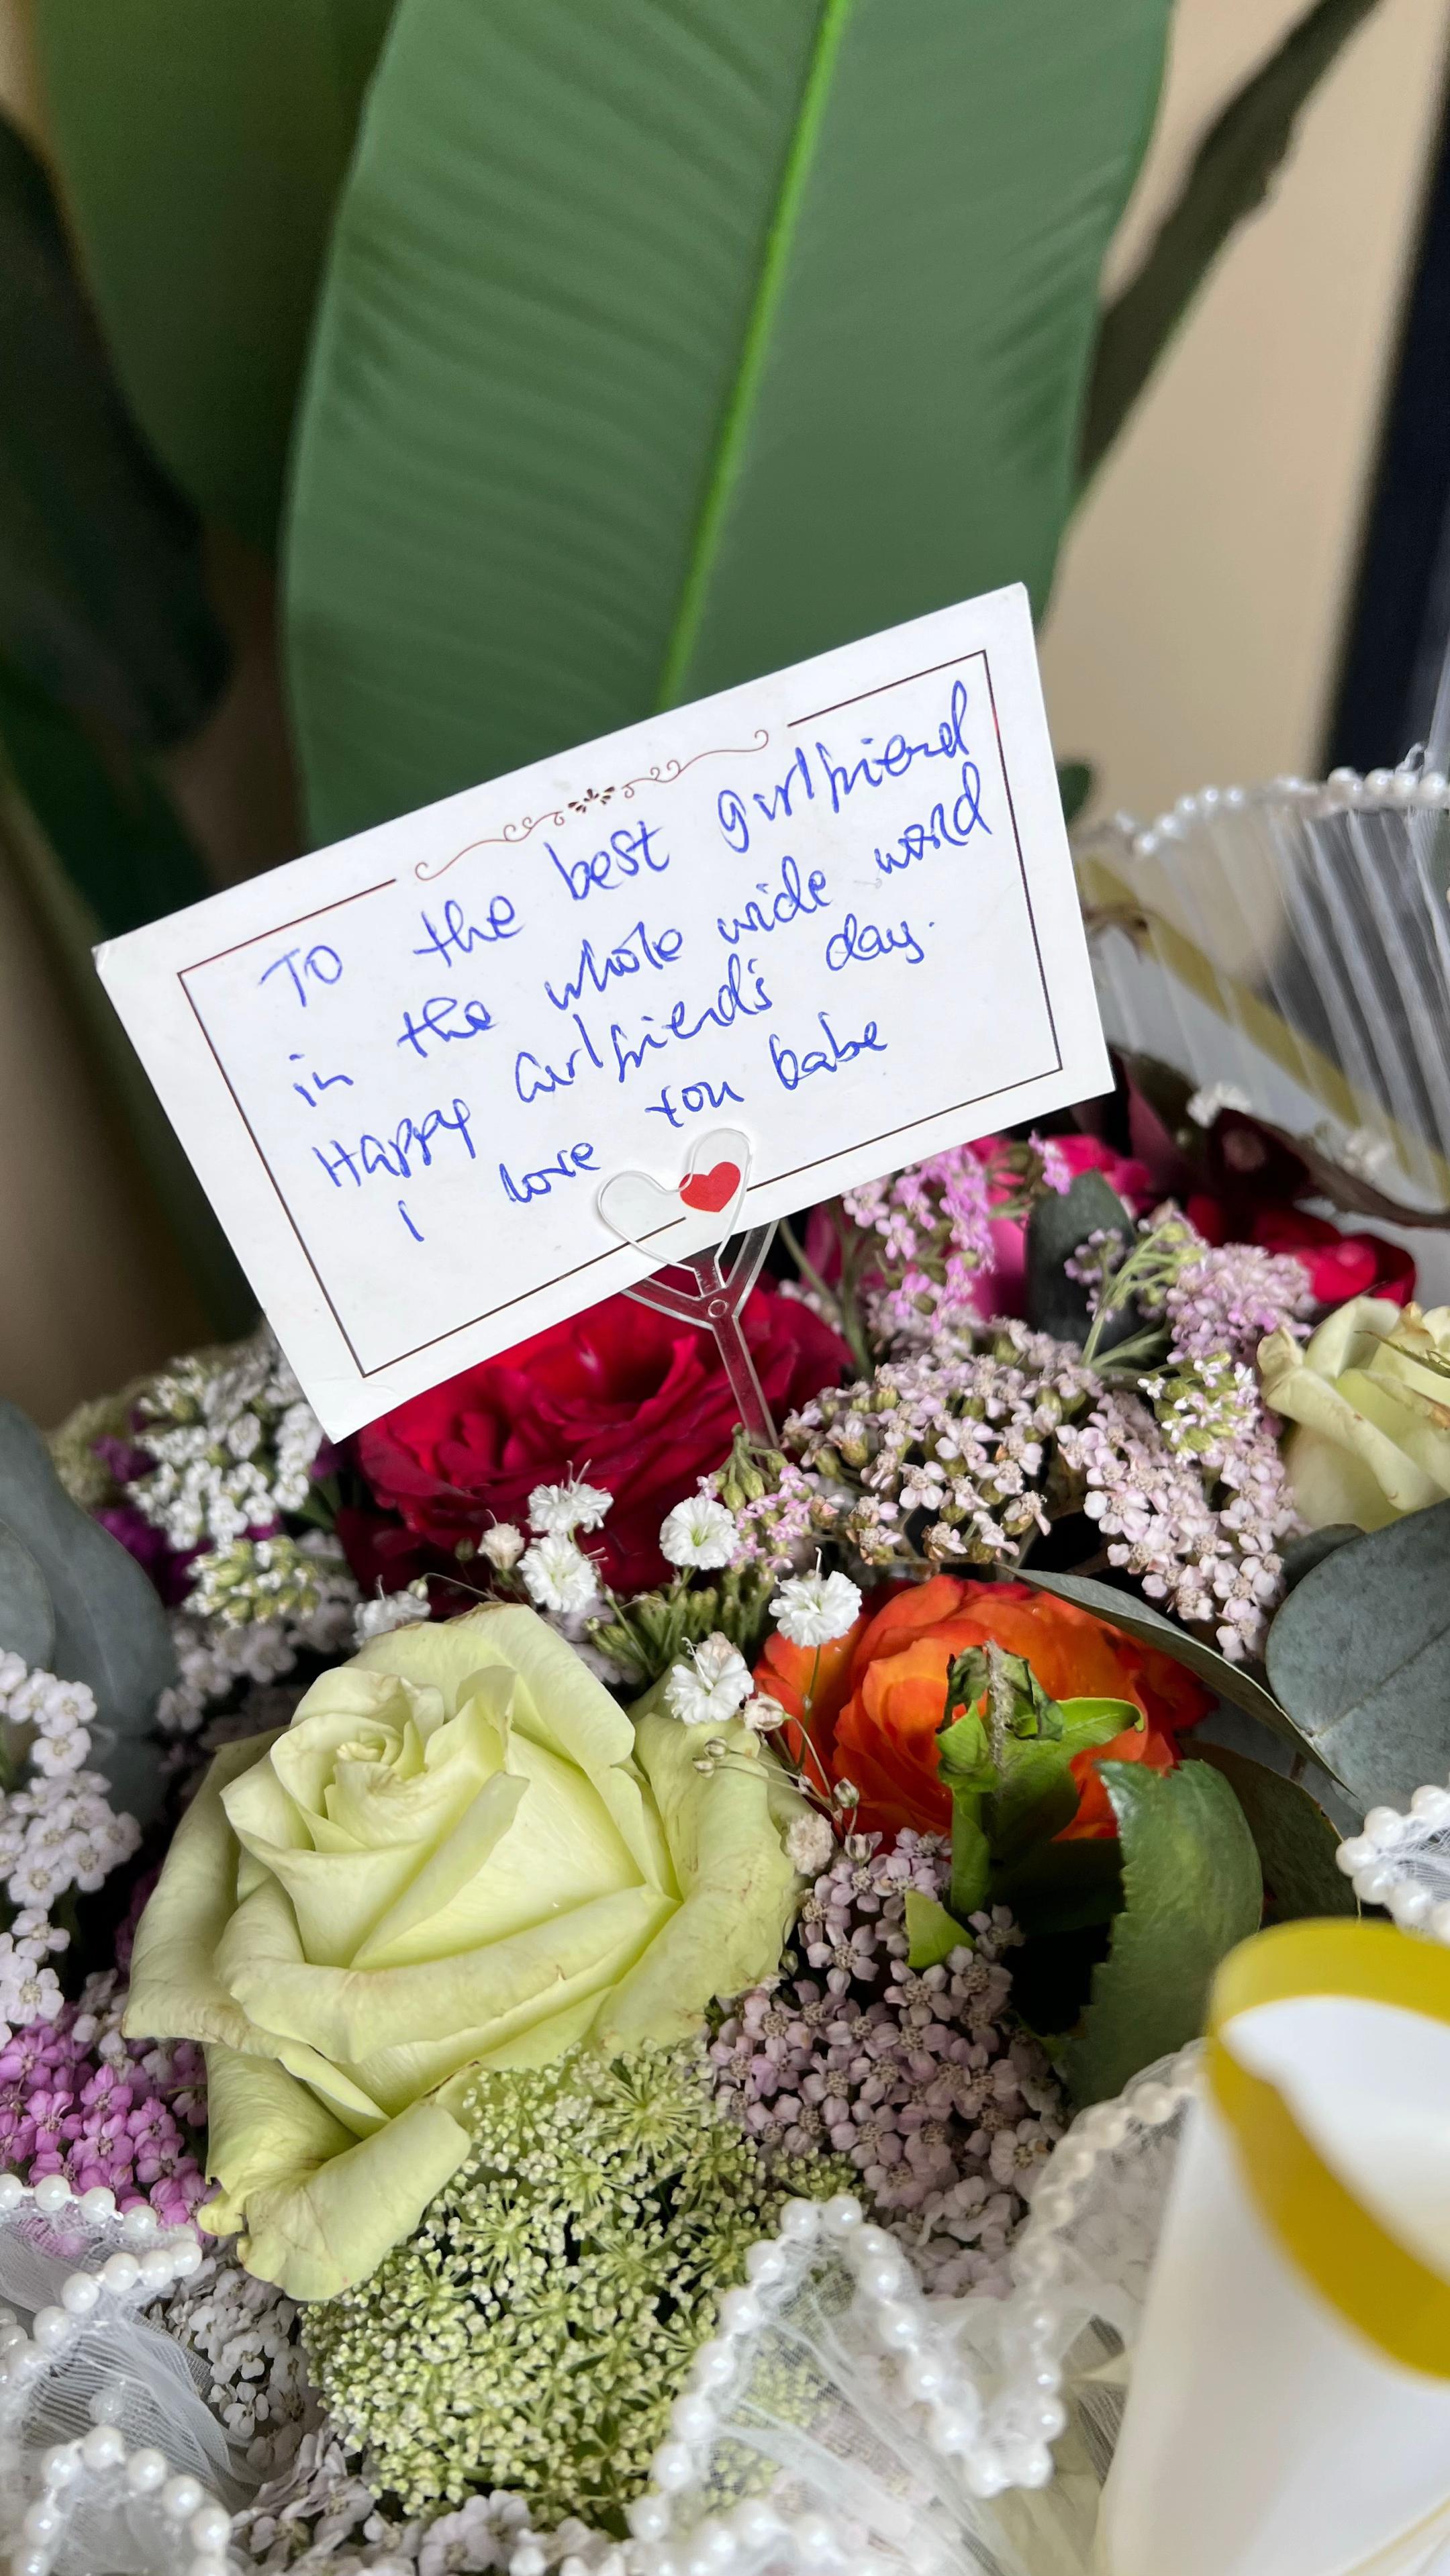 To the best girlfriend
in the whole wide world
Happy Girlfriend's day.
I love you babe